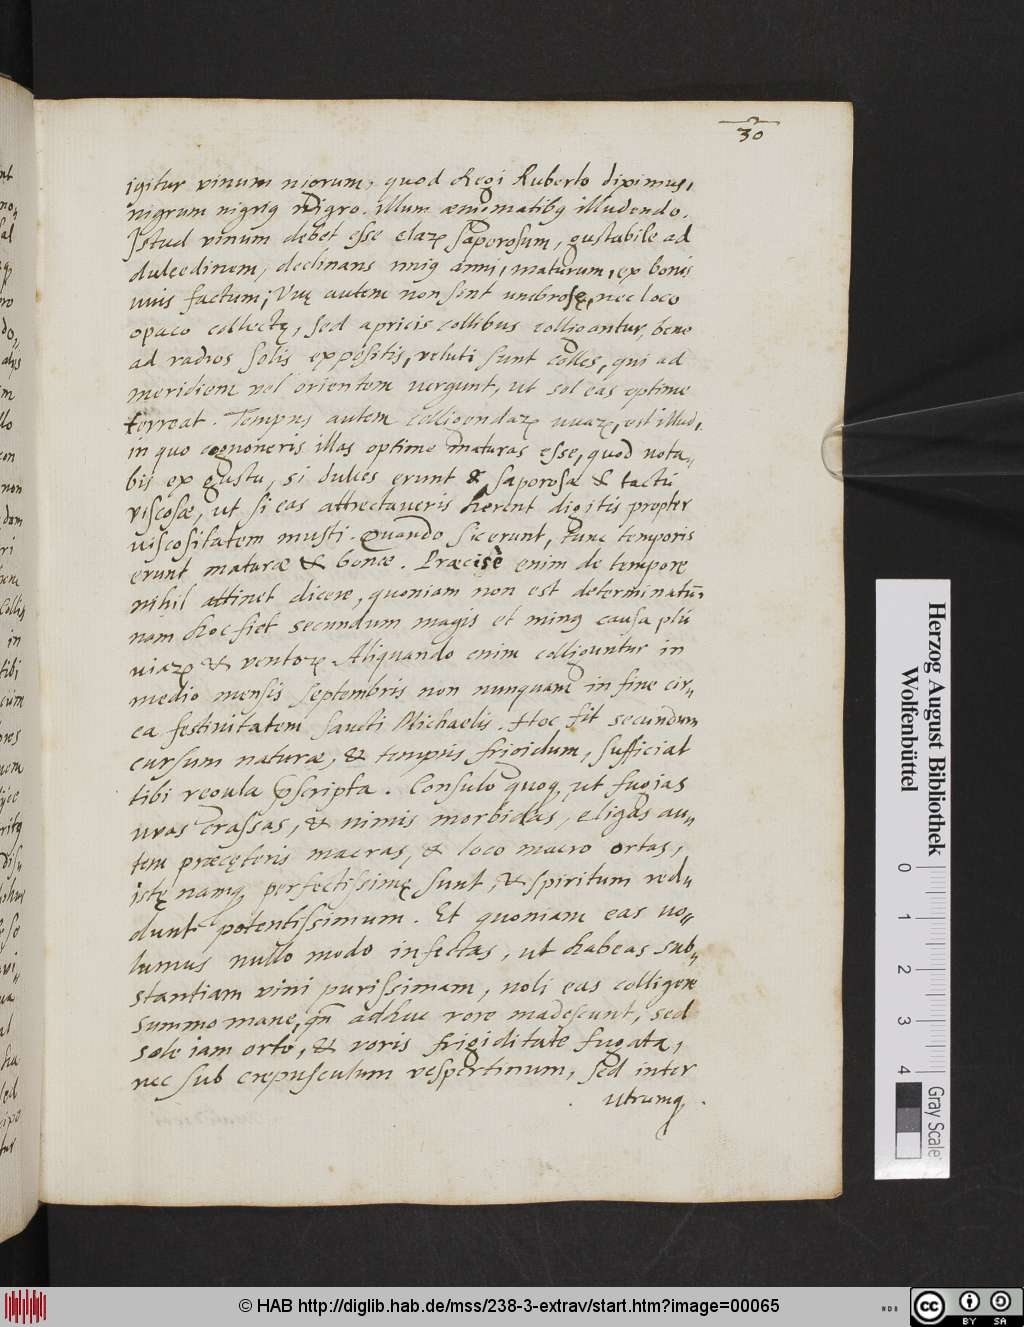 30
igitur vinum nigrum, quod Regi Ruberto diximus,
nigrum nigriꝰ nigro. illum ænigmatibꝰ illudendo.
Istud vinum debet esse claꝝ saporosum, gustabile ad
dulcedinem, declinans uniꝰ anni, maturum, ex bonis
uuis factum; Vuę autem non sint umbrosę, nec loco
opaco collectę, sed apricis collibus colligantur, bene
ad radios solis expositis, veluti sunt colles, qui ad
meridiem vel orientem vergunt, ut sol eas optime
torreat. Tempus autem colligendaꝝ uuaꝝ, est illud,
in quo cognoueris illas optime maturas esse, quod nota-
bis ex gustu, si dulces erunt & saporosæ & tactu
viscosæ, ut si eas attrectaueris herent digitis propter
viscositatem musti. Quando sic erunt, tunc temporis
erunt maturæ & bonæ. Præcisè enim de tempore
nihil attinet dicere, quoniam non est determinatū,
nam hoc fiet secundum magis et minꝰ causa plu
uiaꝝ & ventoꝝ. Aliquando enim colliguntur in
medio mensis septembris non nunquam in fine cir-
ca festiuitatem sancti Michaelis. Hoc fit secundum
cursum naturæ, & tempus frigidum, sufficiat
tibi regula pscripta. Consulo quoq ut fugias
uvas crassas, & nimis morbidas, eligas au-
tem præcęteris macras, & loco macro ortas,
istę namq perfectissimę sunt, & spiritum red-
dunt potentissimum. Et quoniam eas uo-
lumus nullo modo infectas, ut habeas sub-
stantiam vini purissimam, noli eas colligere
summo mane, qn̄ adhuc rore madescunt, sed
sole iam orto, & roris frigiditate fugata,
nec sub crepusculum vespertinum, sed inter
utrumq.
Herzog August Bibliothek
Wolfenbüttel
0 1 2 3 4
Gray Scale
© HAB http://diglib.hab.de/mss/238-3-extrav/start.htm?image=00065
cc BY SA